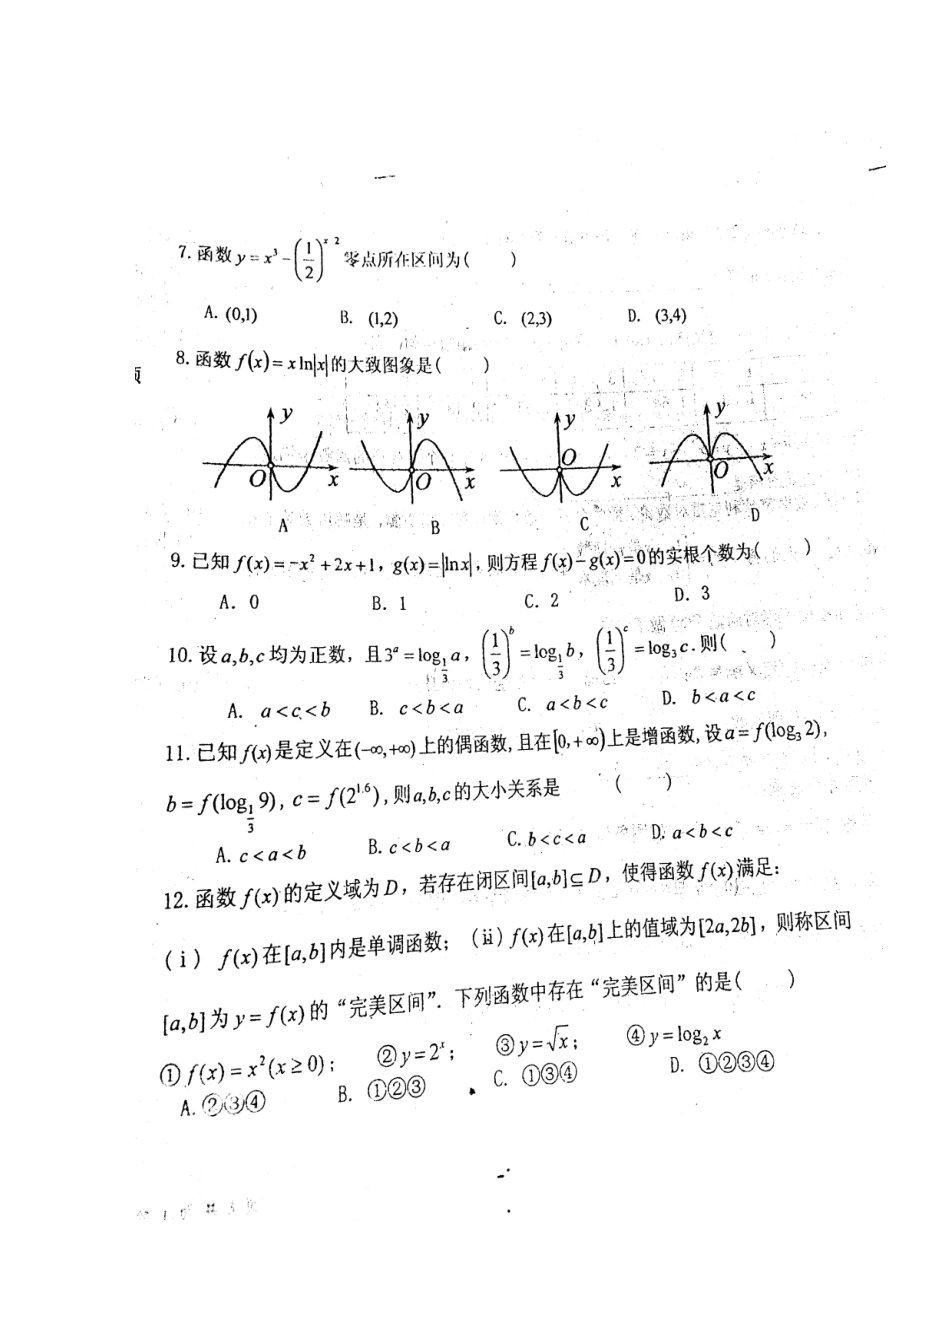 7. 函数 y = x³ - (1/2)^(x 2) 零点所在区间为(　　)
A. (0,1)　　B. (1,2)　　C. (2,3)　　D. (3,4)
8. 函数 f(x) = x ln|x| 的大致图象是(　　)
y y y y
O x O x O x O x
A B C D
9. 已知 f(x) = -x² + 2x + 1，g(x) = |ln x|，则方程 f(x) - g(x) = 0 的实根个数为(　　)
A. 0　　B. 1　　C. 2　　D. 3
10. 设 a,b,c 均为正数，且 3^a = log_(1/3) a，(1/3)^b = log_(1/3) b，(1/3)^c = log_3 c. 则(　　)
A. a<c<b　　B. c<b<a　　C. a<b<c　　D. b<a<c
11. 已知 f(x) 是定义在 (-∞,+∞) 上的偶函数, 且在 [0,+∞) 上是增函数, 设 a = f(log_3 2),
b = f(log_(1/3) 9), c = f(2^1.6), 则 a,b,c 的大小关系是　(　　)
A. c<a<b　　B. c<b<a　　C. b<c<a　　D. a<b<c
12. 函数 f(x) 的定义域为 D，若存在闭区间 [a,b]⊆D，使得函数 f(x) 满足:
(ⅰ) f(x) 在 [a,b] 内是单调函数; (ⅱ) f(x) 在 [a,b] 上的值域为 [2a,2b]，则称区间
[a,b] 为 y = f(x) 的“完美区间”. 下列函数中存在“完美区间”的是(　　)
① f(x) = x² (x≥0);　② y = 2^x;　③ y = √x;　④ y = log₂ x
A. ②③④　　B. ①②③　　C. ①③④　　D. ①②③④